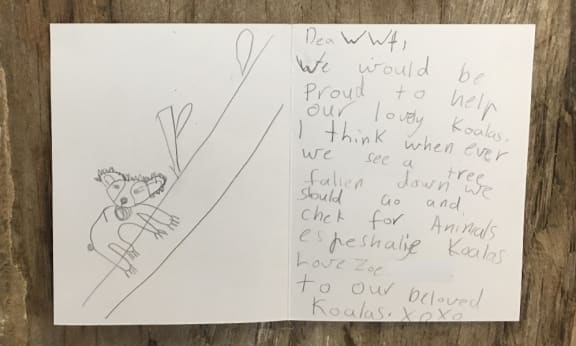 Dea WWf,
We would be
proud to help
our lovely Koalas.
I think when ever
we see a tree
fallen down we
should go and
chek for Animals
espeshalie Koalas
Love Zoe
to our beloved
Koalas. xoxo